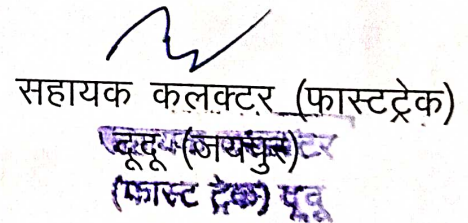 सहायक कलक्टर (फास्टट्रेक)
दूदू (जयपुर)
(फास्ट ट्रेक) दूदू